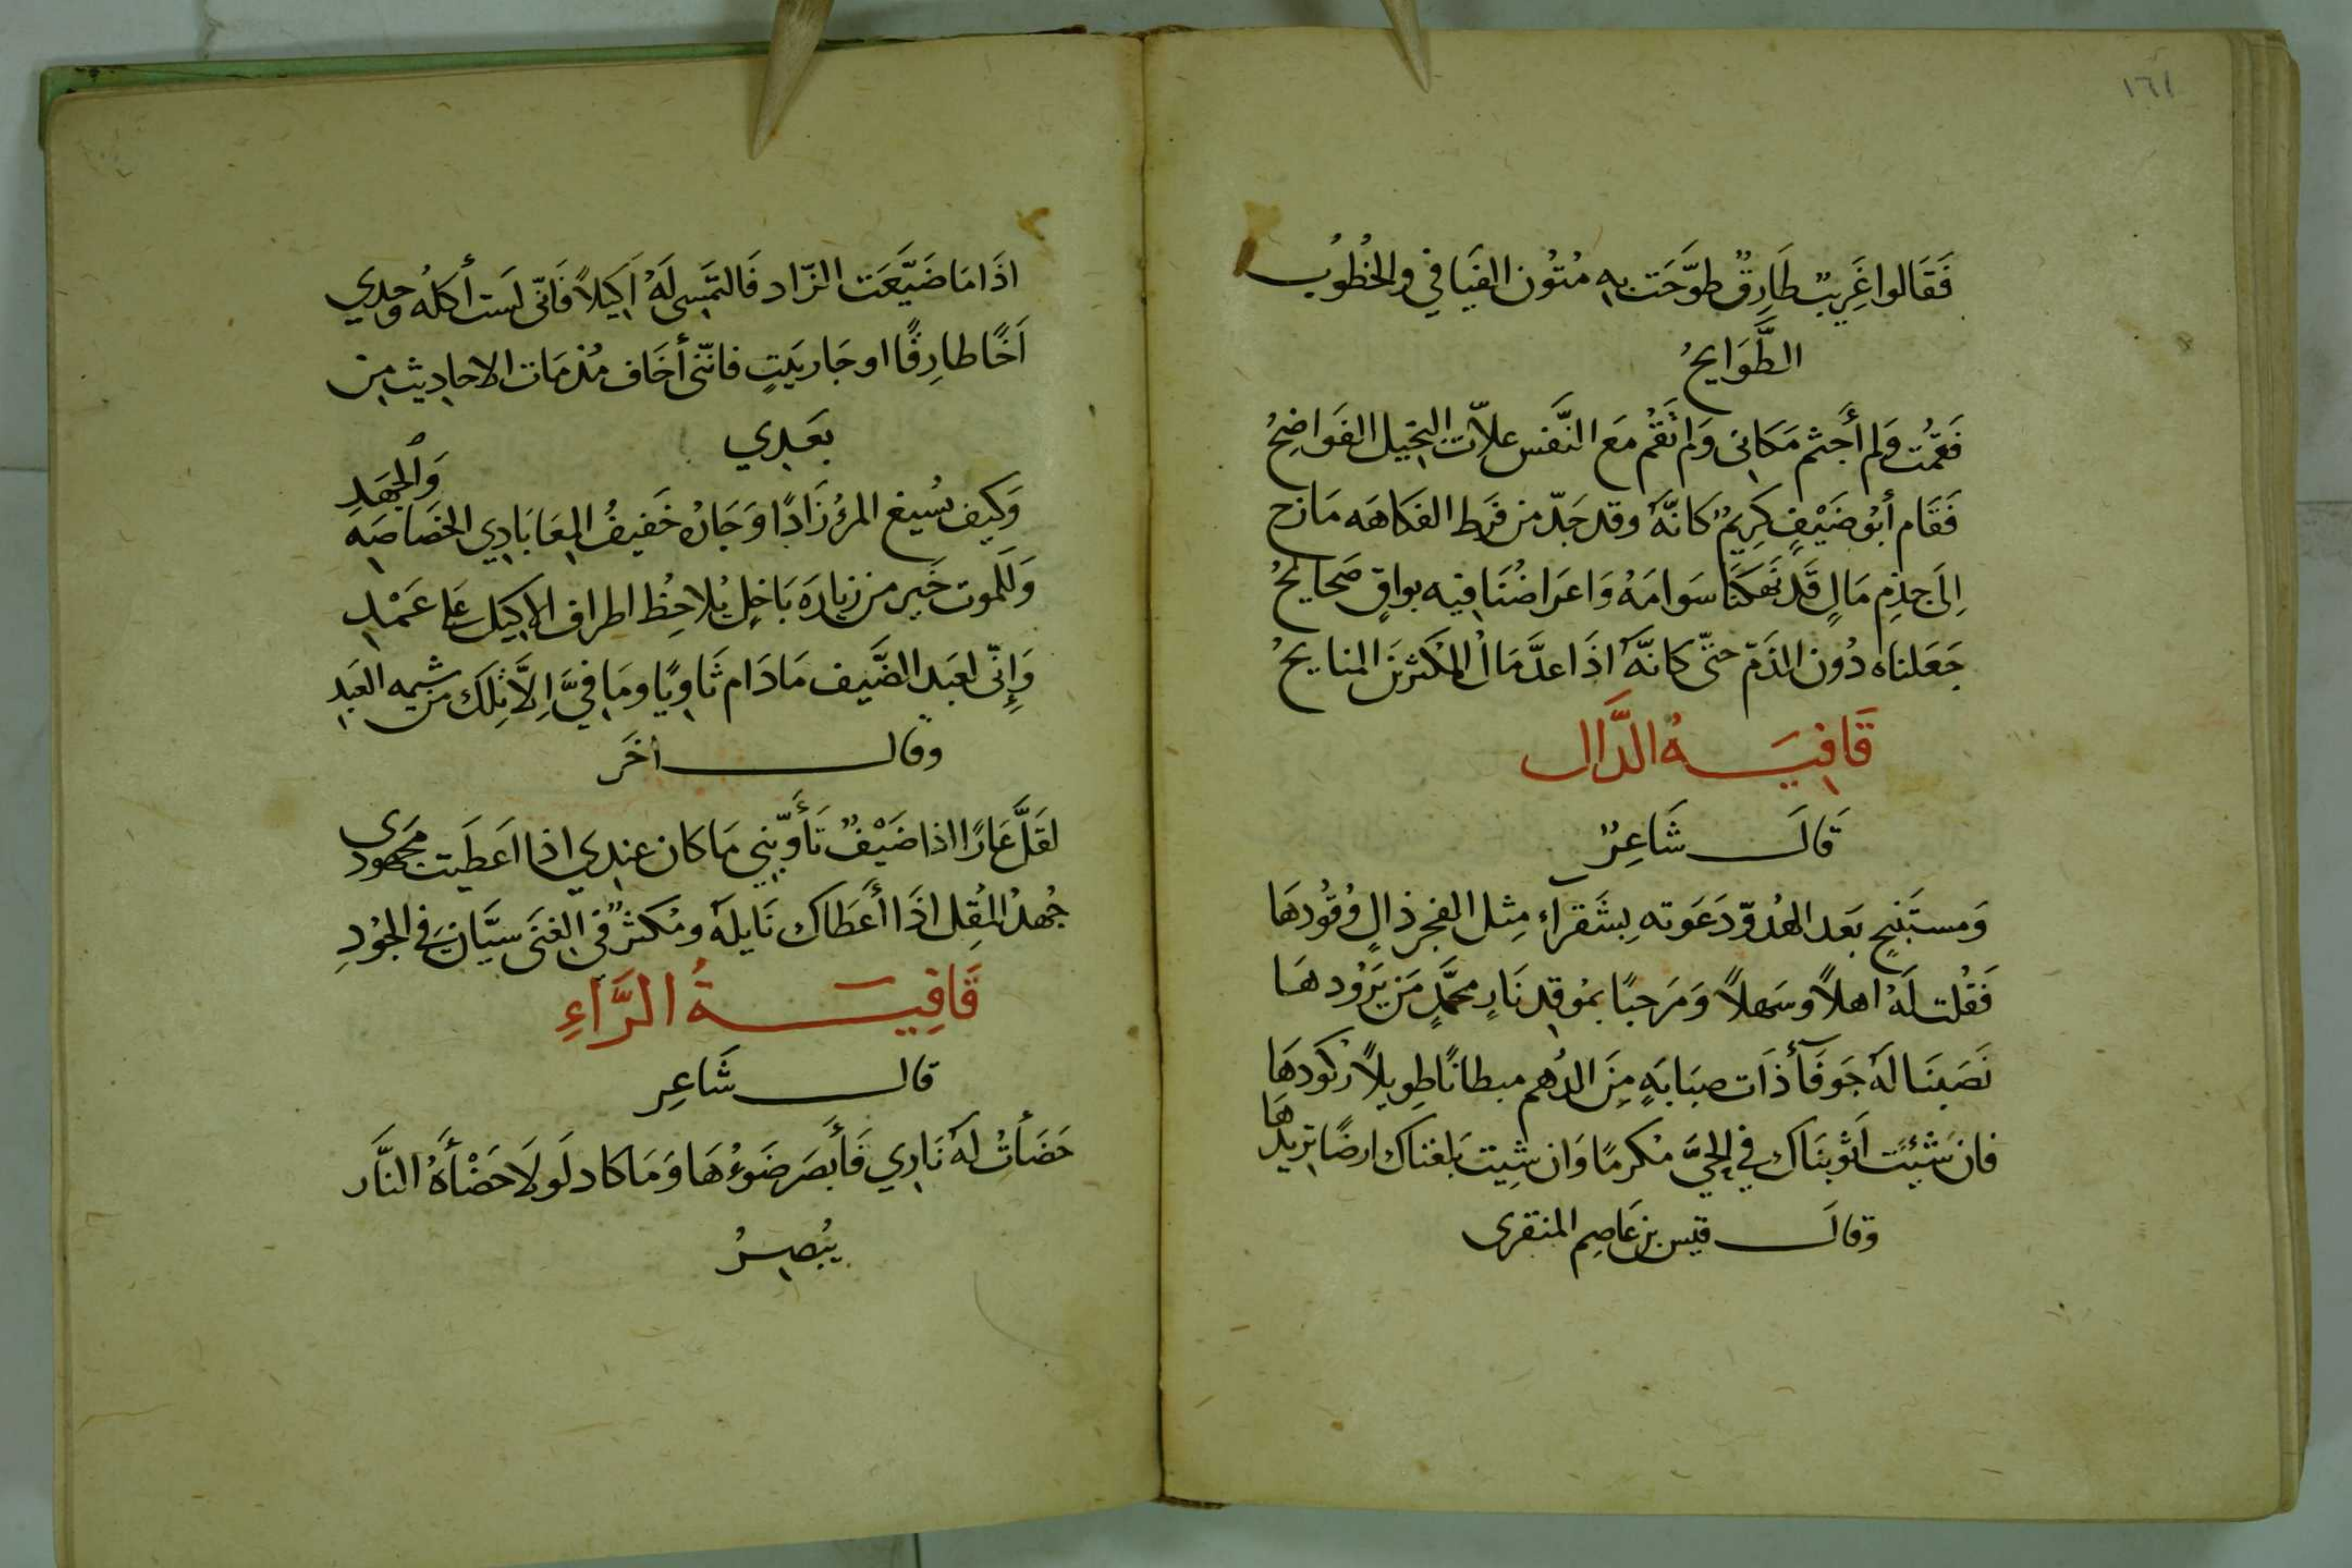 ١٦١
فَقَالوا غَرِيبٌ طَارِقٌ طوَّحَت بِهِ مُتُون الفيَافي والخُطُوب
الطَّوَايحُ
فَقمُت وَلم أَجثم مَكَانى وَلم تَقُم مَعَ النَّفس علاّت البخيل الفَوَاضِحُ
فَقَام أبُو ضَيْفٍ كِريمٌ كَانّهَ وقد جَدّ من فَرط الفكاهَه مَازح
اِلىَ جِذمِ مَالٍ قَد نَهَكنَا سَوامَهُ وَاعرَاضُنَا فيه بواقٍ صَحايحُ
جَعَلناه دُون الذَمّ حتّى كانّهَ اذَا عدَّ مَال المُكثرينَ المنايحُ
قَافِيَةُ الدَّال
قَالَ شَاعِرٌ
وَمستَنبحٍ بَعد الهُدوّ دَعَوته بِشَقَراء مِثل الفجر ذالٍ وُقُودهَا
فَقُلت لَهُ اهلاً وسَهلاً وَمَرحبًا بمُوقِد نَارٍ محمَّدٍ مَن يَرُودهَا
نَصَبنَا لهَ جَوفَآءَ ذَات ضبَابَهٍ مِنَ الدُهم مبطانًا طِويلاً ركُودهَا
فان شَئِت اَثوينَاك في الحيَّ مُكرمًا وَان شِيت بَلغناك ارضًا تريدُهَا
وقالَ قيس بن عَاصِم المنقرى
اذَا مَا ضَيَّعَت الزّاد فَالتَمِسى لَهُ اَكِيلاً فَانّى لَست أكلُه وحدِي
اَخًا طارِقًا او جَار بَيتٍ فانّنى أخَاف مُذمَات الاحادِيث مِن
بعَدِي
وَكَيف يُسيغ المرؤ زَادًا وَجَارُه خَفيفُ المِعَا بَادِي الخصَاصَهِ وَالجَهدِ
وَلَلموت خَير من زيارَه بَاخِلٍ يُلاحِظ اطراف الاكيَل عَلى عَمْدِ
وَإِنّى لعَبَد الضَّيف مَا دَام ثَاويًا ومَا فيَّ اِلاَّ تِلكَ من شيمه العَبَدِ
وقال اخَر
لقَلَّ عَارًا اذا ضَيْفٌ تَأَوّبَني مَا كَان عِندِي اذا اعَطيَت مَجهودى
جُهدُ المُقِل اذَا أَعَطَاك نَايلهَ ومُكثرٌ في الغِنَى سيَّان في الجُودِ
قَافِيَةُ الرَّاءِ
قال شَاعِر
حَضَأتُ لهَ نَارِي فَأَبصَر ضَوءُهَا وَمَا كاد لَولاَ حَضْأَهُ النَّار
يُبصِرُ